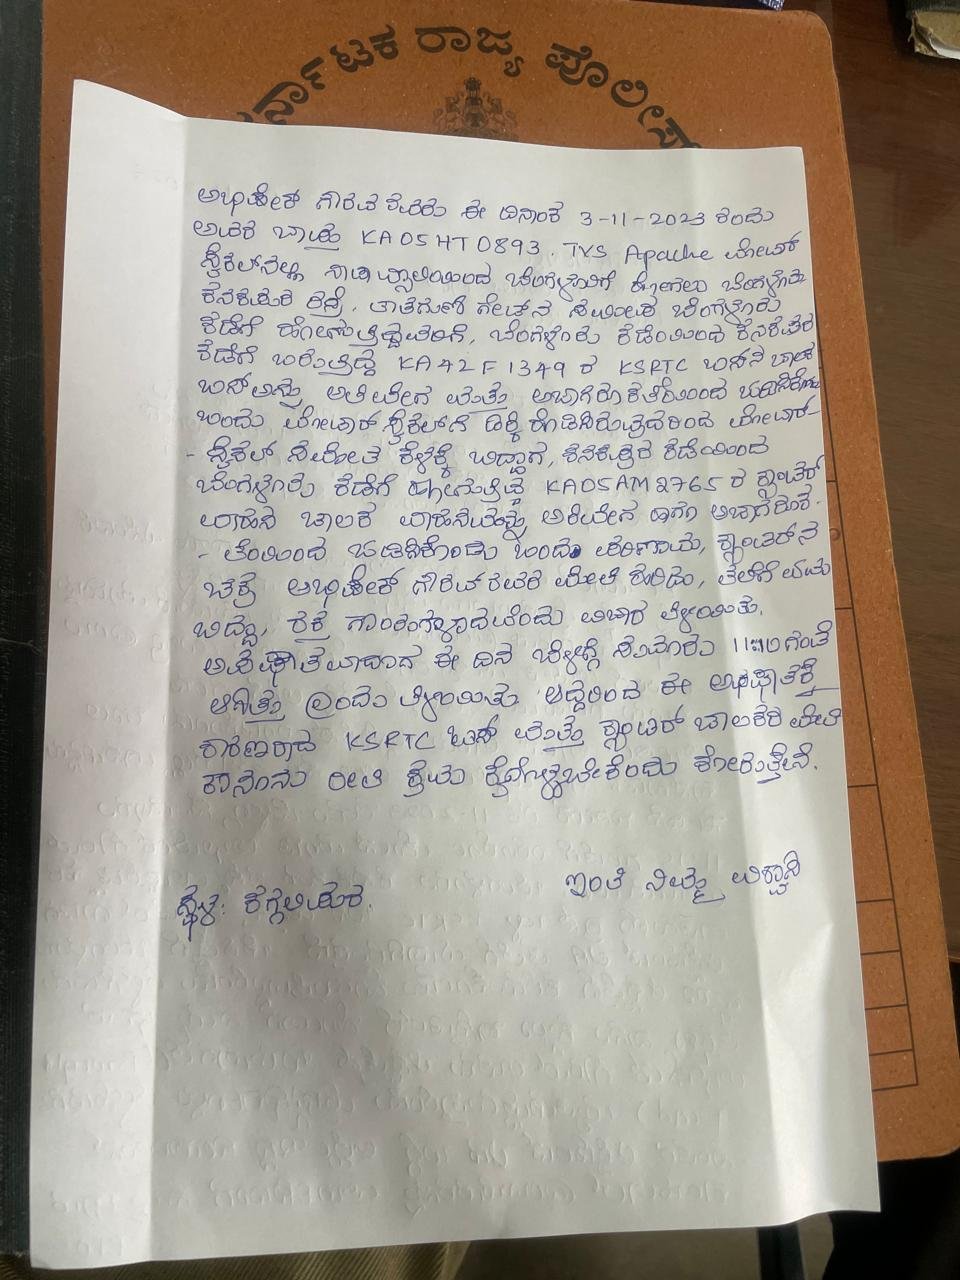 ರ್ನಾಟಕ ರಾಜ್ಯ ಪೊಲೀಸ್
ಅಭಿಷೇಕ್ ಗೌರವ ರವರು ಈ ದಿನಾಂಕ 3-11-2023 ರಂದು
ಅವರ ಬಾಬ್ತು KA05HT0893. TVS Apache ಮೋಟಾರ್
ಸೈಕಲ್‌ನಲ್ಲಿ ಬೆಂಗಳೂರಿಗೆ ಹೋಗಲು ಬೆಂಗಳೂರು
ಕನಕಪುರ ರಸ್ತೆ, ತಾತಗುಣಿ ಗೇಟ್‌ನ ಸಮೀಪ ಬೆಂಗಳೂರು
ಕಡೆಗೆ ಹೋಗುತ್ತಿದ್ದವರಿಗೆ, ಬೆಂಗಳೂರು ಕಡೆಯಿಂದ ಕನಕಪುರ
ಕಡೆಗೆ ಬರುತ್ತಿದ್ದ KA42F1349 ರ KSRTC ಬಸ್‌ನ ಚಾಲಕ
ಬಸ್ ಅನ್ನು ಅತಿವೇಗ ಮತ್ತು ಅಜಾಗರೂಕತೆಯಿಂದ ಚಾಲಿಸಿಕೊಂಡು
ಬಂದು ಮೋಟಾರ್ ಸೈಕಲ್‌ಗೆ ಡಿಕ್ಕಿ ಹೊಡಿಸಿರುವುದರಿಂದ ಮೋಟಾರ್-
- ಸೈಕಲ್ ಸಮೇತ ಕೆಳಕ್ಕೆ ಬಿದ್ದಾಗ, ಕನಕಪುರ ಕಡೆಯಿಂದ
ಬೆಂಗಳೂರು ಕಡೆಗೆ ಹೋಗುತ್ತಿದ್ದ KA05AM2765 ರ ಕ್ಯಾಂಟರ್
ವಾಹನ ಚಾಲಕ ವಾಹನವನ್ನು ಅತಿವೇಗ ಹಾಗೂ ಅಜಾಗರೂಕ-
- ತೆಯಿಂದ ಚಾಲಿಸಿಕೊಂಡು ಬಂದ ಪರಿಣಾಮ, ಕ್ಯಾಂಟರ್‌ನ
ಚಕ್ರ ಅಭಿಷೇಕ್ ಗೌರವ್ ರವರ ಮೇಲೆ ಹರಿದು, ತಲೆಗೆ ಪೆಟ್ಟು
ಬಿದ್ದು, ರಕ್ತ ಗಾಯಗಳಾದವೆಂದು ವಿಚಾರ ತಿಳಿಯಿತು.
ಅಪಘಾತವಾದಾಗ ಈ ದಿನ ಬೆಳಗ್ಗೆ ಸುಮಾರು 11:30 ಗಂಟೆ
ಆಗಿತ್ತು ಎಂದು ತಿಳಿಯಿತು. ಆದ್ದರಿಂದ ಈ ಅಪಘಾತಕ್ಕೆ
ಕಾರಣರಾದ KSRTC ಬಸ್ ಮತ್ತು ಕ್ಯಾಂಟರ್ ಚಾಲಕರ ಮೇಲೆ
ಕಾನೂನು ರೀತಿ ಕ್ರಮ ಕೈಗೊಳ್ಳಬೇಕೆಂದು ಕೋರುತ್ತೇನೆ.
ಇಂತಿ ನಿಮ್ಮ ವಿಶ್ವಾಸಿ
ಸ್ಥಳ: ಕಗ್ಗಲಿಪುರ.